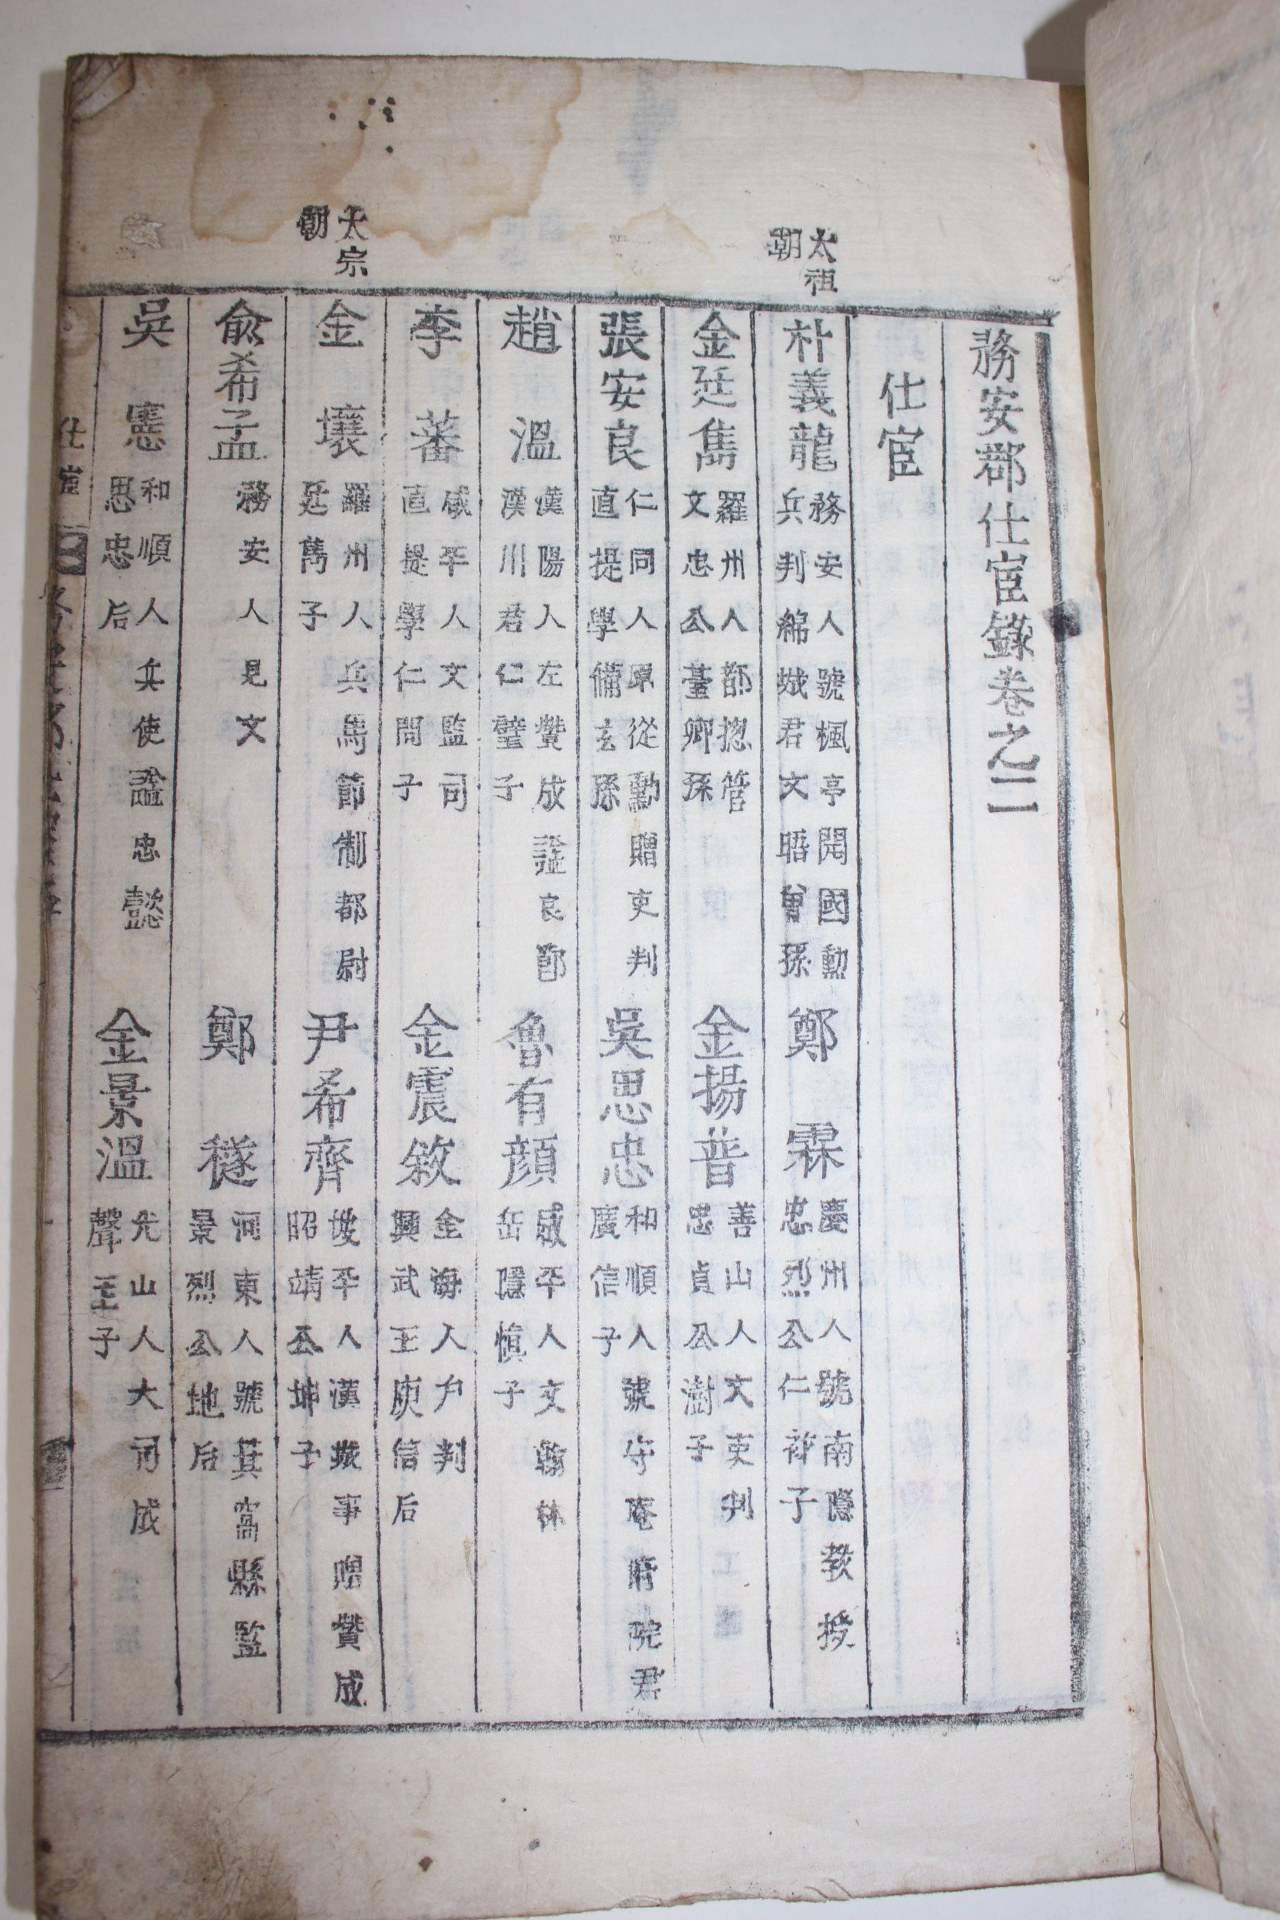 務安郡仕宦錄卷之二
仕宦
太祖朝
朴義龍 務安人號楓亭開國勳兵判綿城君文晤曾孫
鄭霖 慶州人號南隱教授忠烈公仁裕子
金廷雋 羅州人都揔管文忠公臺卿孫
金揚普 善山人文吏判忠貞公澍子
張安良 仁同人原從勳贈吏判直提學備玄孫
吳思忠 和順人號守庵府院君廣信子
趙溫 漢陽人左贊成諡良節漢川君仁璧子
魯有顔 咸平人文翰林岳隱愼子
李蕃 咸平人文監司直提學仁間子
金震敘 金海人戶判興武王庾信后
太宗朝
金壤 羅州人兵馬節制都尉廷萬子
尹希齊 坡平人漢城事贈贊成昭靖公坤子
兪希孟 務安人見文
鄭穟 河東人號箕窩縣監景烈公地后
吳憲 和順人兵使諡忠懿思忠后
金景溫 光山人大司成聲玉子
仕宦 二